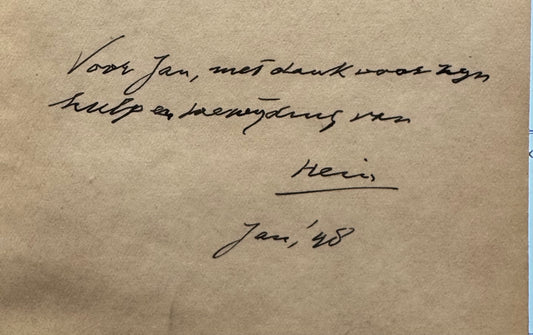 Voor Jan, met dank voor zijn
hulp en toewijding van
Hein
Jan, '98